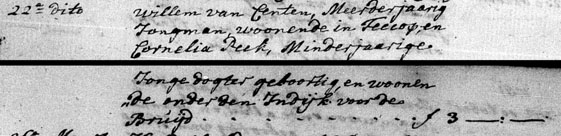 22en dito Willem van Centen, Meerderjaarig
Jongman, woonende in Teecop, en
Cornelia Peek, Minderjaarige
Jonge dogter geboortig, en woonen
„de onder den Indijk voor de
Bruijd . . . . . . . . f 3 —:—